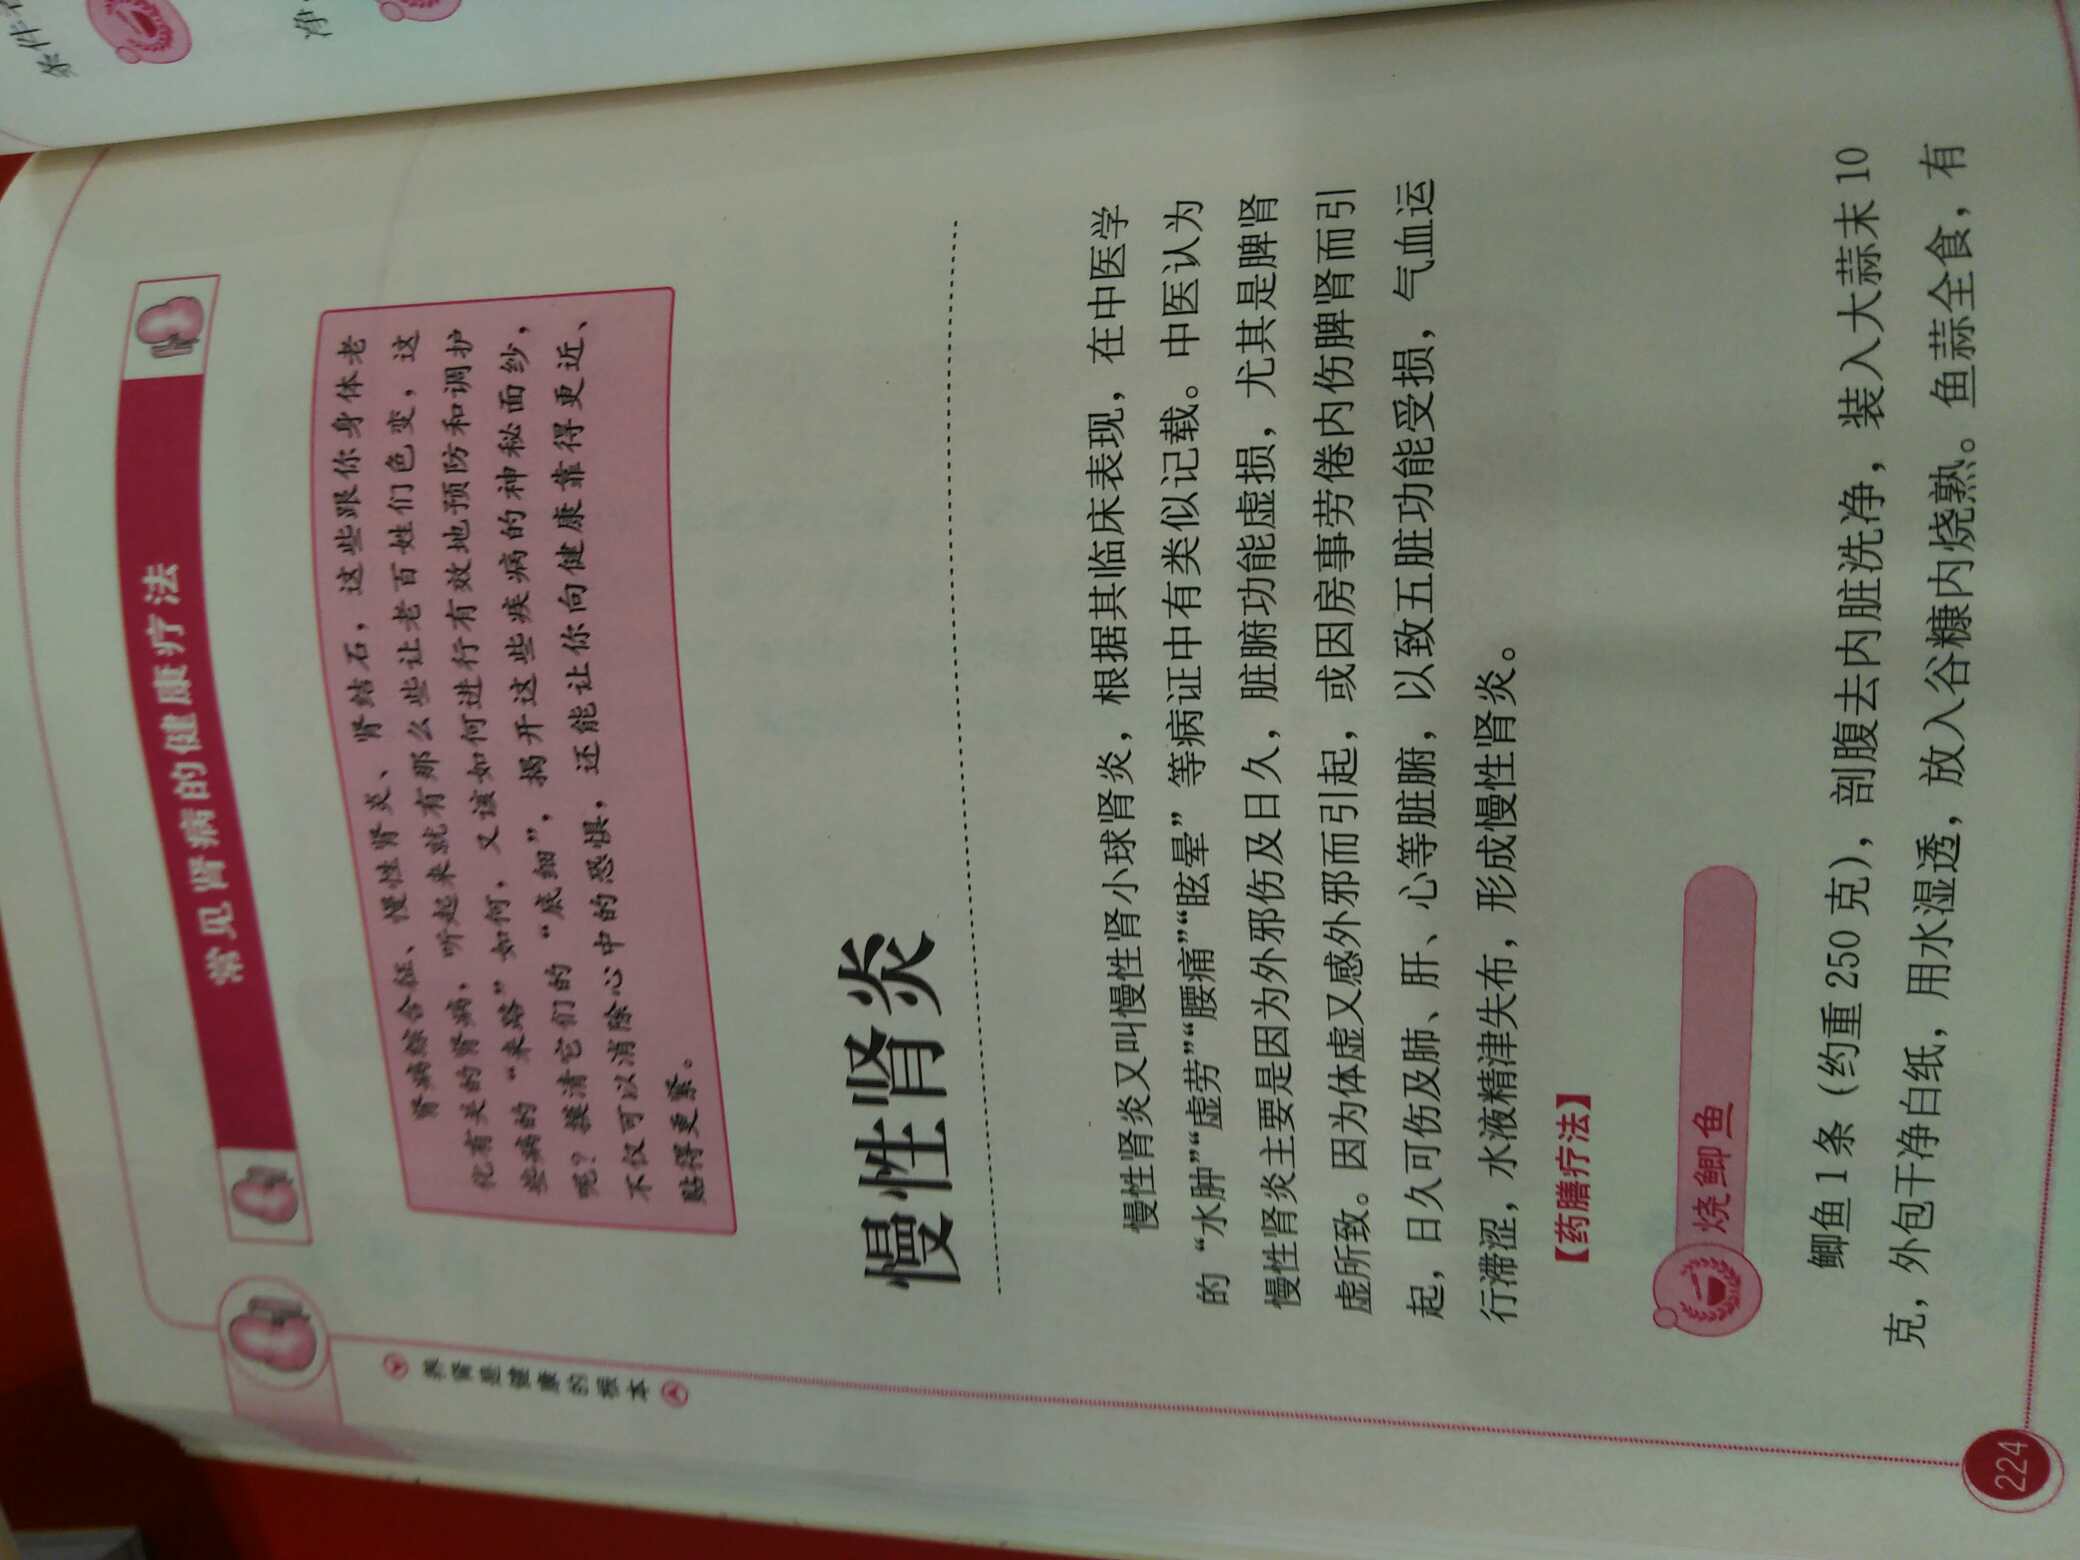 常见肾病的健康疗法
肾病综合征、慢性肾炎、肾结石，这些跟你身体老
化有关的肾病，听起来就有那么些让老百姓们色变，这
些病的“来路”如何，又该如何进行有效地预防和调护
呢？摸清它们的“底细”，揭开这些疾病的神秘面纱，
不仅可以消除心中的恐惧，还能让你向健康靠得更近、
贴得更紧。
养肾是健康的根本
慢性肾炎
慢性肾炎又叫慢性肾小球肾炎，根据其临床表现，在中医学
的“水肿”“虚劳”“腰痛”“眩晕”等病证中有类似记载。中医认为
慢性肾炎主要是因为外邪伤及日久，脏腑功能虚损，尤其是脾肾
虚所致。因为体虚又感外邪而引起，或因房事劳倦内伤脾肾而引
起，日久可伤及肺、肝、心等脏腑，以致五脏功能受损，气血运
行滞涩，水液精津失布，形成慢性肾炎。
【药膳疗法】
烧鲫鱼
鲫鱼1条（约重250克），剖腹去内脏洗净，装入大蒜末10
克，外包干净白纸，用水湿透，放入谷糠内烧熟。鱼蒜全食，有
224